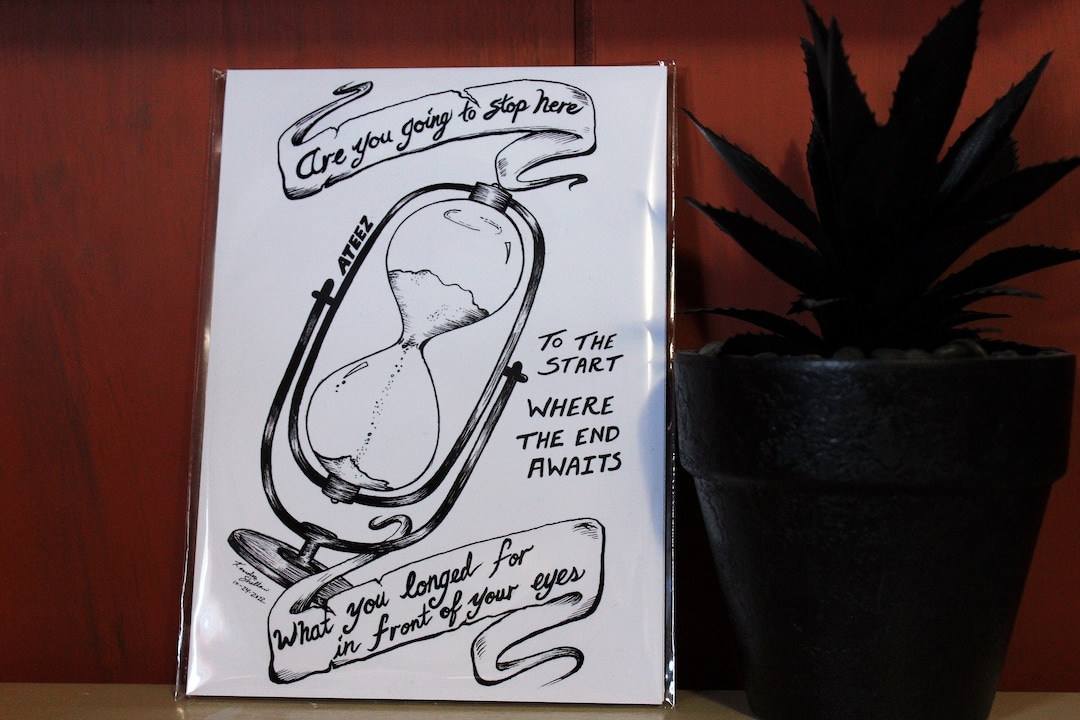 Are you going to stop here
ATEEZ
TO THE
START
WHERE
THE END
AWAITS
What you longed for
in front of your eyes
10-24-2022